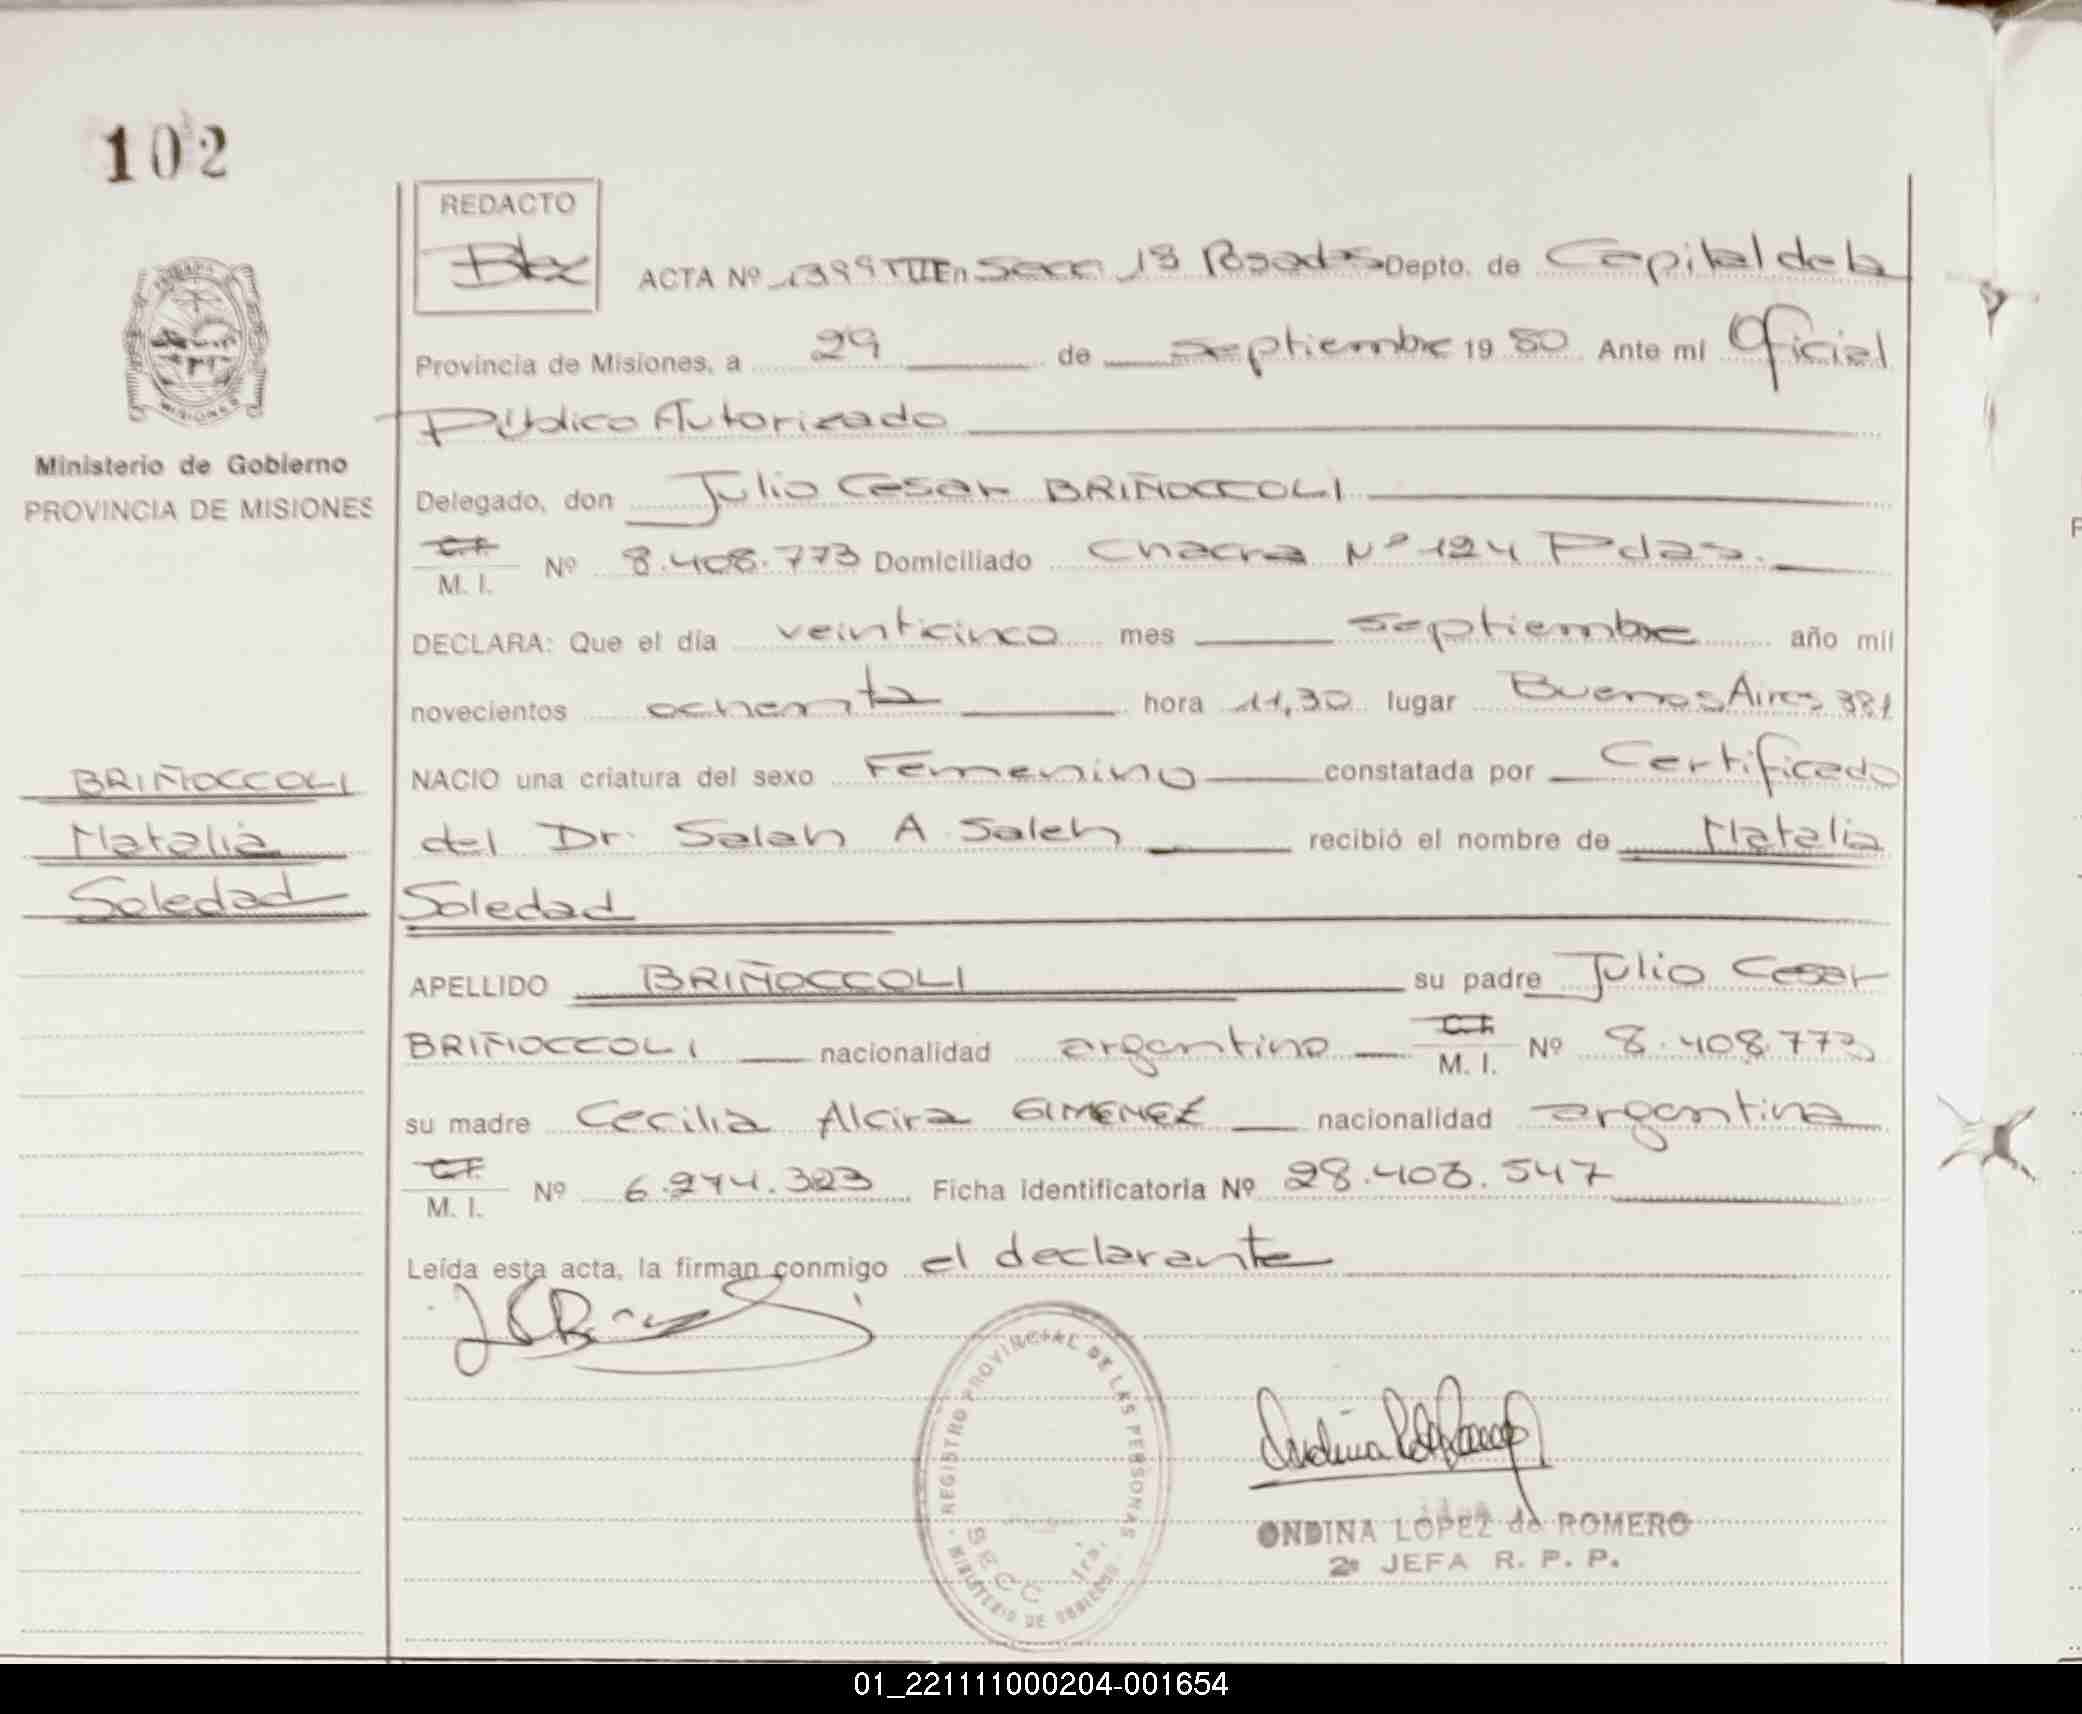 102
REDACTO
ACTA Nº 1399 TIII En Secc 1ª Posadas Depto. de Capital de la
Provincia de Misiones, a 29 de septiembre 19 80 Ante mí Oficial
Público Autorizado
Ministerio de Gobierno
PROVINCIA DE MISIONES
Delegado, don Julio Cesar BRIÑOCCOLI
C.I.
M. I. Nº 8.408.773 Domiciliado Chacra Nº 124 Pdas.
DECLARA: Que el día veinticinco mes septiembre año mil
novecientos ochenta hora 11,30 lugar Buenos Aires 381
NACIO una criatura del sexo Femenino constatada por Certificado
del Dr. Saleh A Saleh recibió el nombre de Natalia
Soledad
BRIÑOCCOLI
Natalia
Soledad
APELLIDO BRIÑOCCOLI su padre Julio Cesar
BRIÑOCCOLI nacionalidad argentino C.I.
M. I. Nº 8.408.773
su madre Cecilia Alcira GIMENEZ nacionalidad argentina
C.I.
M. I. Nº 6.274.323 Ficha identificatoria Nº 28.403.547
Leída esta acta, la firman conmigo el declarante
REGISTRO PROVINCIAL DE LAS PERSONAS
SECC 1ra.
MINISTERIO DE GOBIERNO
ONDINA LOPEZ de ROMERO
2º JEFA R. P. P.
01_221111000204-001654